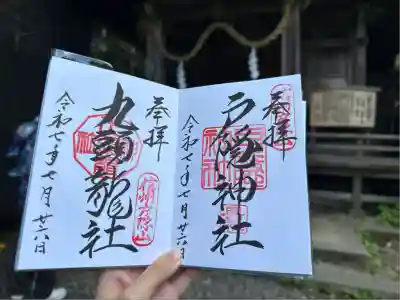 奉拝
戸隠神社
令和七年七月廿六日
奉拝
九頭龍社
令和七年七月廿六日